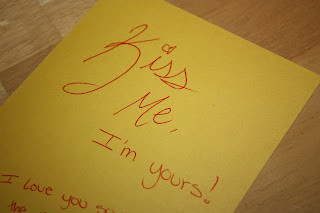 Kiss
Me,
I'm yours!
I love you
the